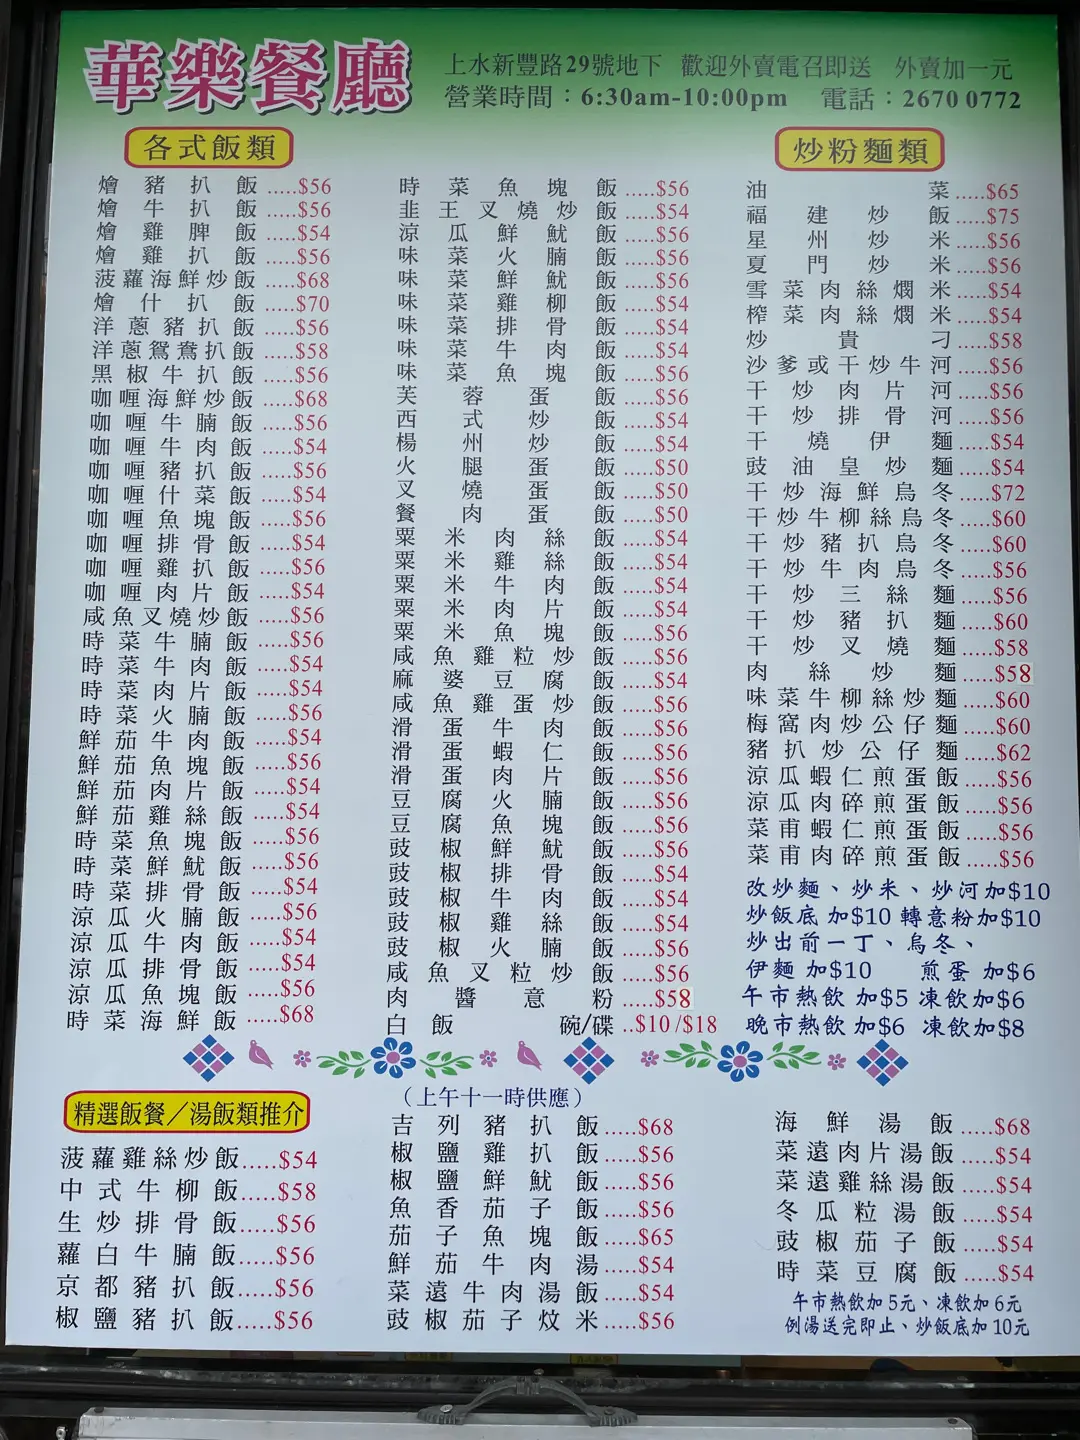 華樂餐廳
上水新豐路29號地下 歡迎外賣電召即送 外賣加一元
營業時間：6:30am-10:00pm 電話：2670 0772
各式飯類
燴豬扒飯.....$56
燴牛扒飯.....$56
燴雞脾飯.....$54
燴雞扒飯.....$56
菠蘿海鮮炒飯.....$68
燴什扒飯.....$70
洋蔥豬扒飯.....$56
洋蔥鴛鴦扒飯.....$58
黑椒牛扒飯.....$56
咖喱海鮮炒飯.....$68
咖喱牛腩飯.....$56
咖喱牛肉飯.....$54
咖喱豬扒飯.....$56
咖喱什菜飯.....$54
咖喱魚塊飯.....$56
咖喱排骨飯.....$54
咖喱雞扒飯.....$56
咖喱肉片飯.....$54
咸魚叉燒炒飯.....$56
時菜牛腩飯.....$56
時菜牛肉飯.....$54
時菜肉片飯.....$54
時菜火腩飯.....$56
鮮茄牛肉飯.....$54
鮮茄魚塊飯.....$56
鮮茄肉片飯.....$54
鮮茄雞絲飯.....$54
時菜魚塊飯.....$56
時菜鮮魷飯.....$56
時菜排骨飯.....$54
涼瓜火腩飯.....$56
涼瓜牛肉飯.....$54
涼瓜排骨飯.....$54
涼瓜魚塊飯.....$56
時菜海鮮飯.....$68
時菜魚塊飯.....$56
韭王叉燒炒飯.....$54
涼瓜鮮魷飯.....$56
味菜火腩飯.....$56
味菜鮮魷飯.....$56
味菜雞柳飯.....$54
味菜排骨飯.....$54
味菜牛肉飯.....$54
味菜魚塊飯.....$56
芙蓉蛋飯.....$56
西式炒飯.....$54
楊州炒飯.....$54
火腿蛋飯.....$50
叉燒蛋飯.....$50
餐肉蛋飯.....$50
粟米肉絲飯.....$54
粟米雞絲飯.....$54
粟米牛肉飯.....$54
粟米肉片飯.....$54
粟米魚塊飯.....$56
咸魚雞粒炒飯.....$56
麻婆豆腐飯.....$54
咸魚雞蛋炒飯.....$56
滑蛋牛肉飯.....$54
滑蛋蝦仁飯.....$56
滑蛋肉片飯.....$54
豆腐火腩飯.....$56
豆腐魚塊飯.....$56
豉椒鮮魷飯.....$56
豉椒排骨飯.....$54
豉椒牛肉飯.....$54
豉椒雞絲飯.....$54
豉椒火腩飯.....$56
咸魚叉粒炒飯.....$56
肉醬意粉.....$58
白飯 碗/碟..$10/$18
炒粉麵類
油菜.....$65
福建炒飯.....$75
星州炒米.....$56
夏門炒米.....$56
雪菜肉絲燜米.....$54
榨菜肉絲燜米.....$54
炒貴刁.....$58
沙爹或干炒牛河.....$56
干炒肉片河.....$56
干炒排骨河.....$56
干燒伊麵.....$54
豉油皇炒麵.....$54
干炒海鮮烏冬.....$72
干炒牛柳絲烏冬.....$60
干炒豬扒烏冬.....$60
干炒牛肉烏冬.....$56
干炒三絲麵.....$56
干炒豬扒麵.....$60
干炒叉燒麵.....$58
肉絲炒麵.....$58
味菜牛柳絲炒麵.....$60
梅窩肉炒公仔麵.....$60
豬扒炒公仔麵.....$62
涼瓜蝦仁煎蛋飯.....$56
涼瓜肉碎煎蛋飯.....$56
菜甫蝦仁煎蛋飯.....$56
菜甫肉碎煎蛋飯.....$56
改炒麵、炒米、炒河加$10
炒飯底加$10 轉意粉加$10
炒出前一丁、烏冬、
伊麵加$10 煎蛋加$6
午市熱飲加$5 凍飲加$6
晚市熱飲加$6 凍飲加$8
精選飯餐／湯飯類推介
菠蘿雞絲炒飯.....$54
中式牛柳飯.....$58
生炒排骨飯.....$56
蘿白牛腩飯.....$56
京都豬扒飯.....$56
椒鹽豬扒飯.....$56
（上午十一時供應）
吉列豬扒飯.....$68
椒鹽雞扒飯.....$56
椒鹽鮮魷飯.....$56
魚香茄子飯.....$56
茄子魚塊飯.....$65
鮮茄牛肉湯.....$54
菜遠牛肉湯飯.....$54
豉椒茄子炆米.....$56
海鮮湯飯.....$68
菜遠肉片湯飯.....$54
菜遠雞絲湯飯.....$54
冬瓜粒湯飯.....$54
豉椒茄子飯.....$54
時菜豆腐飯.....$54
午市熱飲加5元、凍飲加6元
例湯送完即止、炒飯底加10元